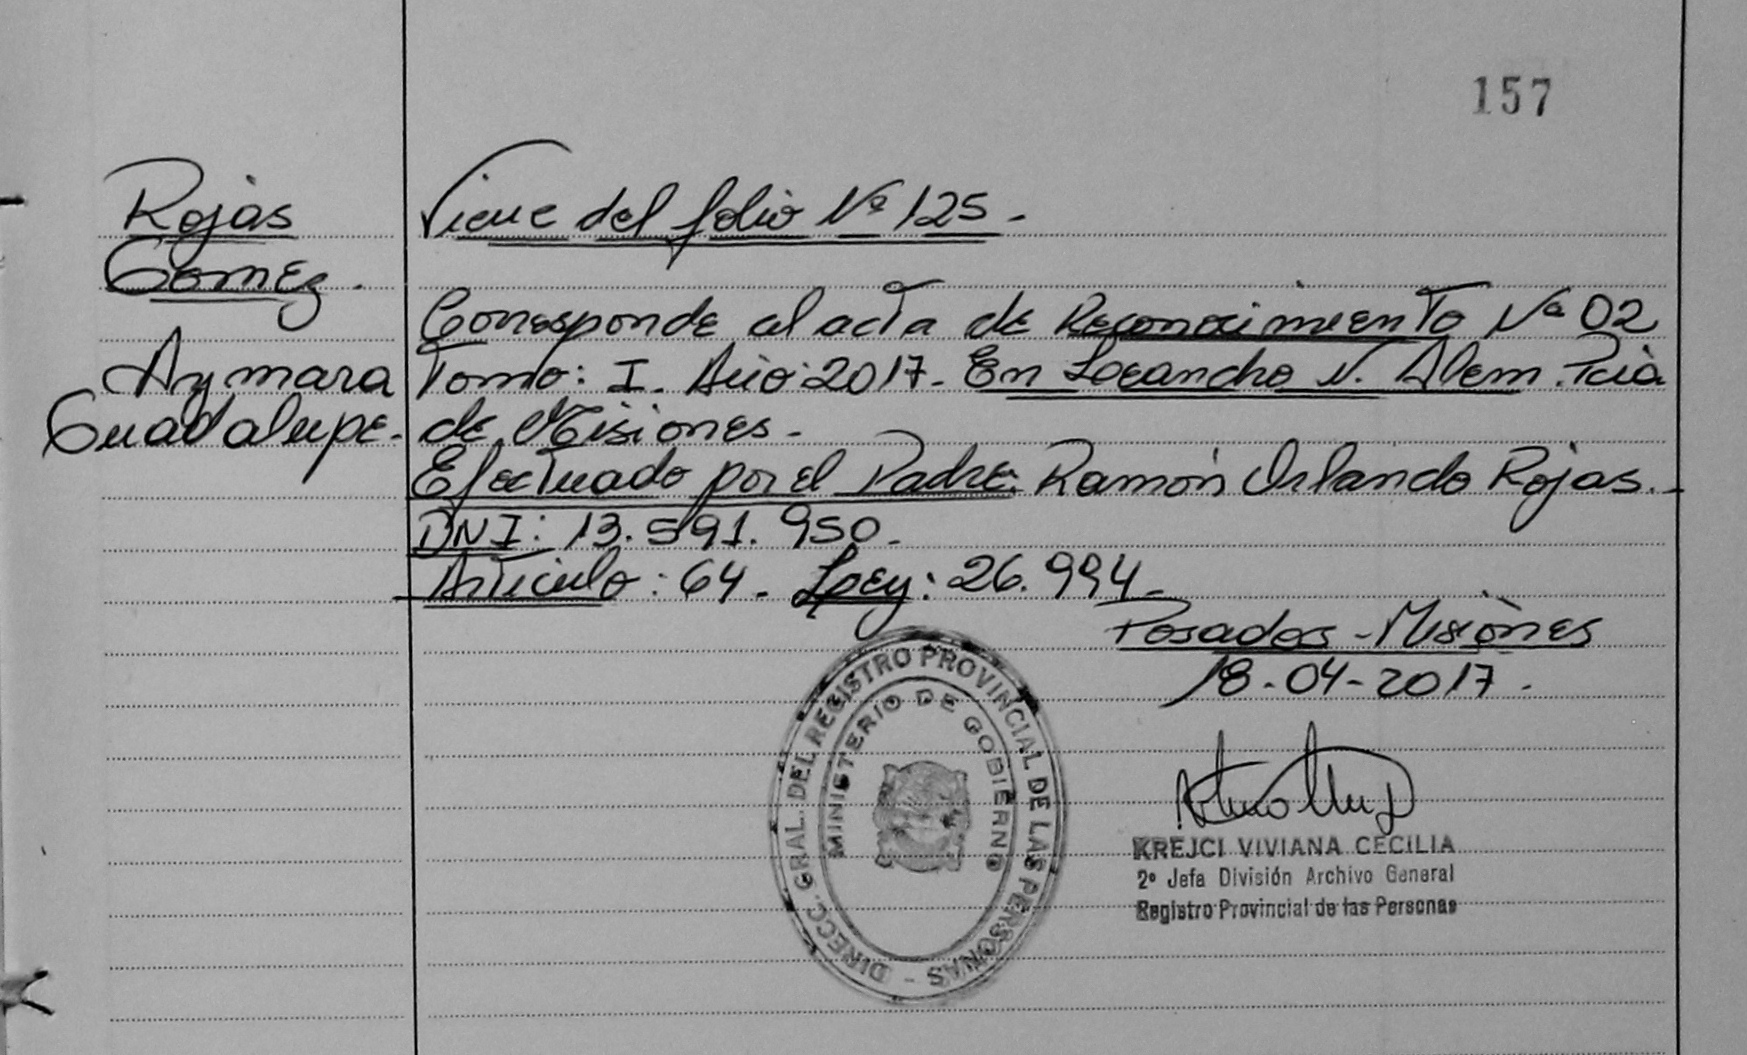 157
Rojas
Gomez.
Aymara
Guadalupe.
Viene del folio Nº 125.-
Corresponde al acta de Reconocimiento Nº 02
Tomo: I. Año: 2017. En Leandro N. Alem. Pcia
de Misiones.-
Efectuado por el Padre: Ramón Orlando Rojas.-
DNI: 13.591.950.-
Artículo: 64.- Ley: 26.994.-
Posadas-Misiones
18-04-2017.
DIRECC. GRAL. DEL REGISTRO PROVINCIAL DE LAS PERSONAS -
MINISTERIO DE GOBIERNO
KREJCI VIVIANA CECILIA
2º Jefa División Archivo General
Registro Provincial de las Personas